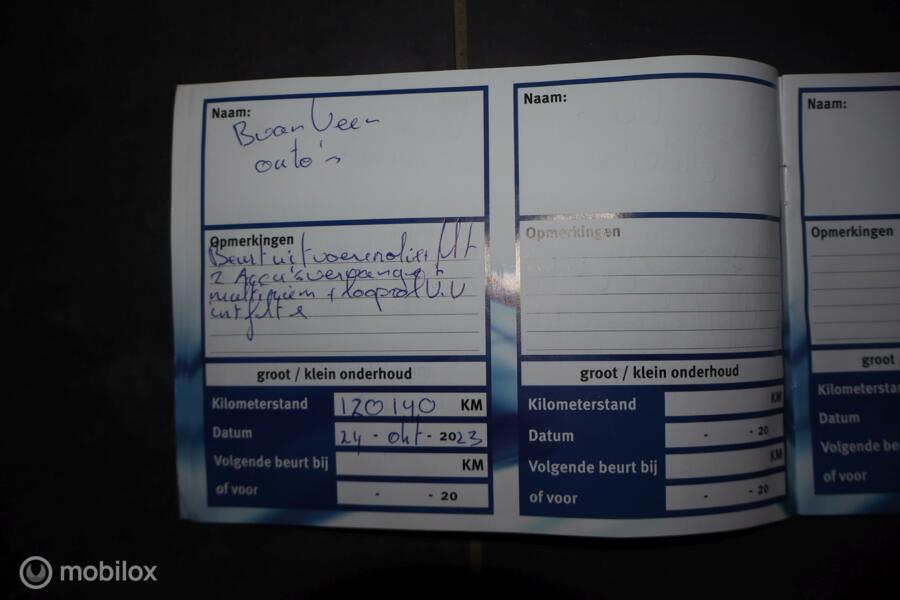 Naam:
B van Veen
auto's
Opmerkingen
Beurt uitvoeren olie
2 Accu's vervangen
multiriem + looprol V.V
int filte
groot / klein onderhoud
Kilometerstand 120140 KM
Datum 24 - okt - 2023
Volgende beurt bij KM
of voor - - 20
Naam:
Opmerkingen
groot / klein onderhoud
Kilometerstand KM
Datum - - 20
Volgende beurt bij KM
of voor - - 20
Naam:
Opmerkingen
groot /
Kilometersta
Datum
Volgende be
of voor
mobilox